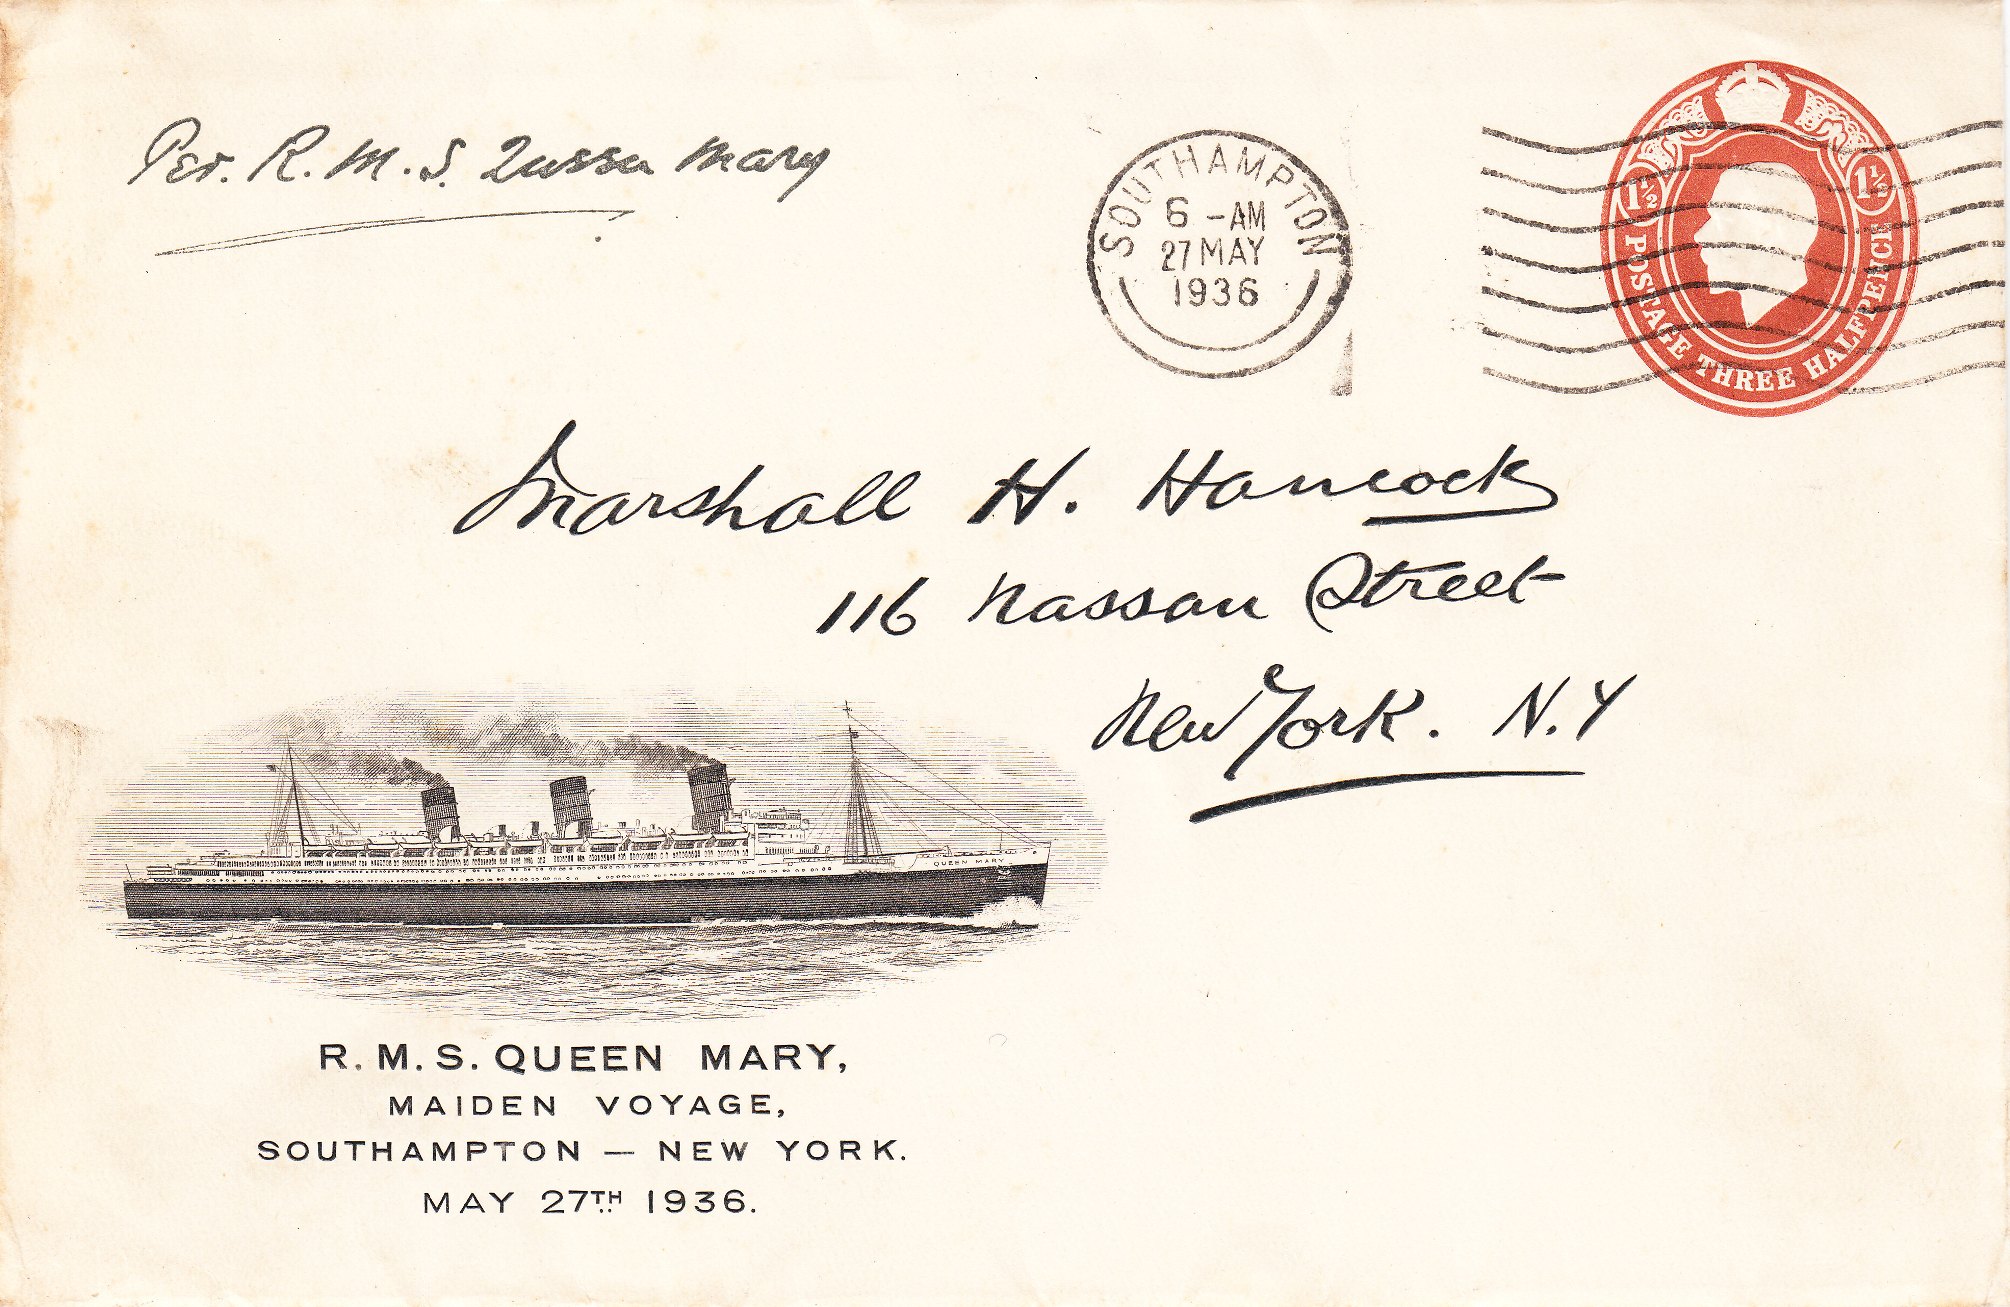 Per. R.M.S. Queen Mary
SOUTHAMPTON
6 -AM
27 MAY
1936
1½ 1½
POSTAGE THREE HALFPENCE
Marshall H. Hancock
116 Nassau Street
New York. N.Y
QUEEN MARY
R.M.S. QUEEN MARY,
MAIDEN VOYAGE,
SOUTHAMPTON — NEW YORK.
MAY 27TH 1936.